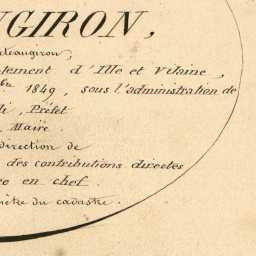 UGIRON,
teaugiron,
tement d'Ille et Vilaine,
bre 1849, sous l'administration de
di, Préfet
Maire
direction de
des contributions directes
re en chef.
mètre du cadastre.